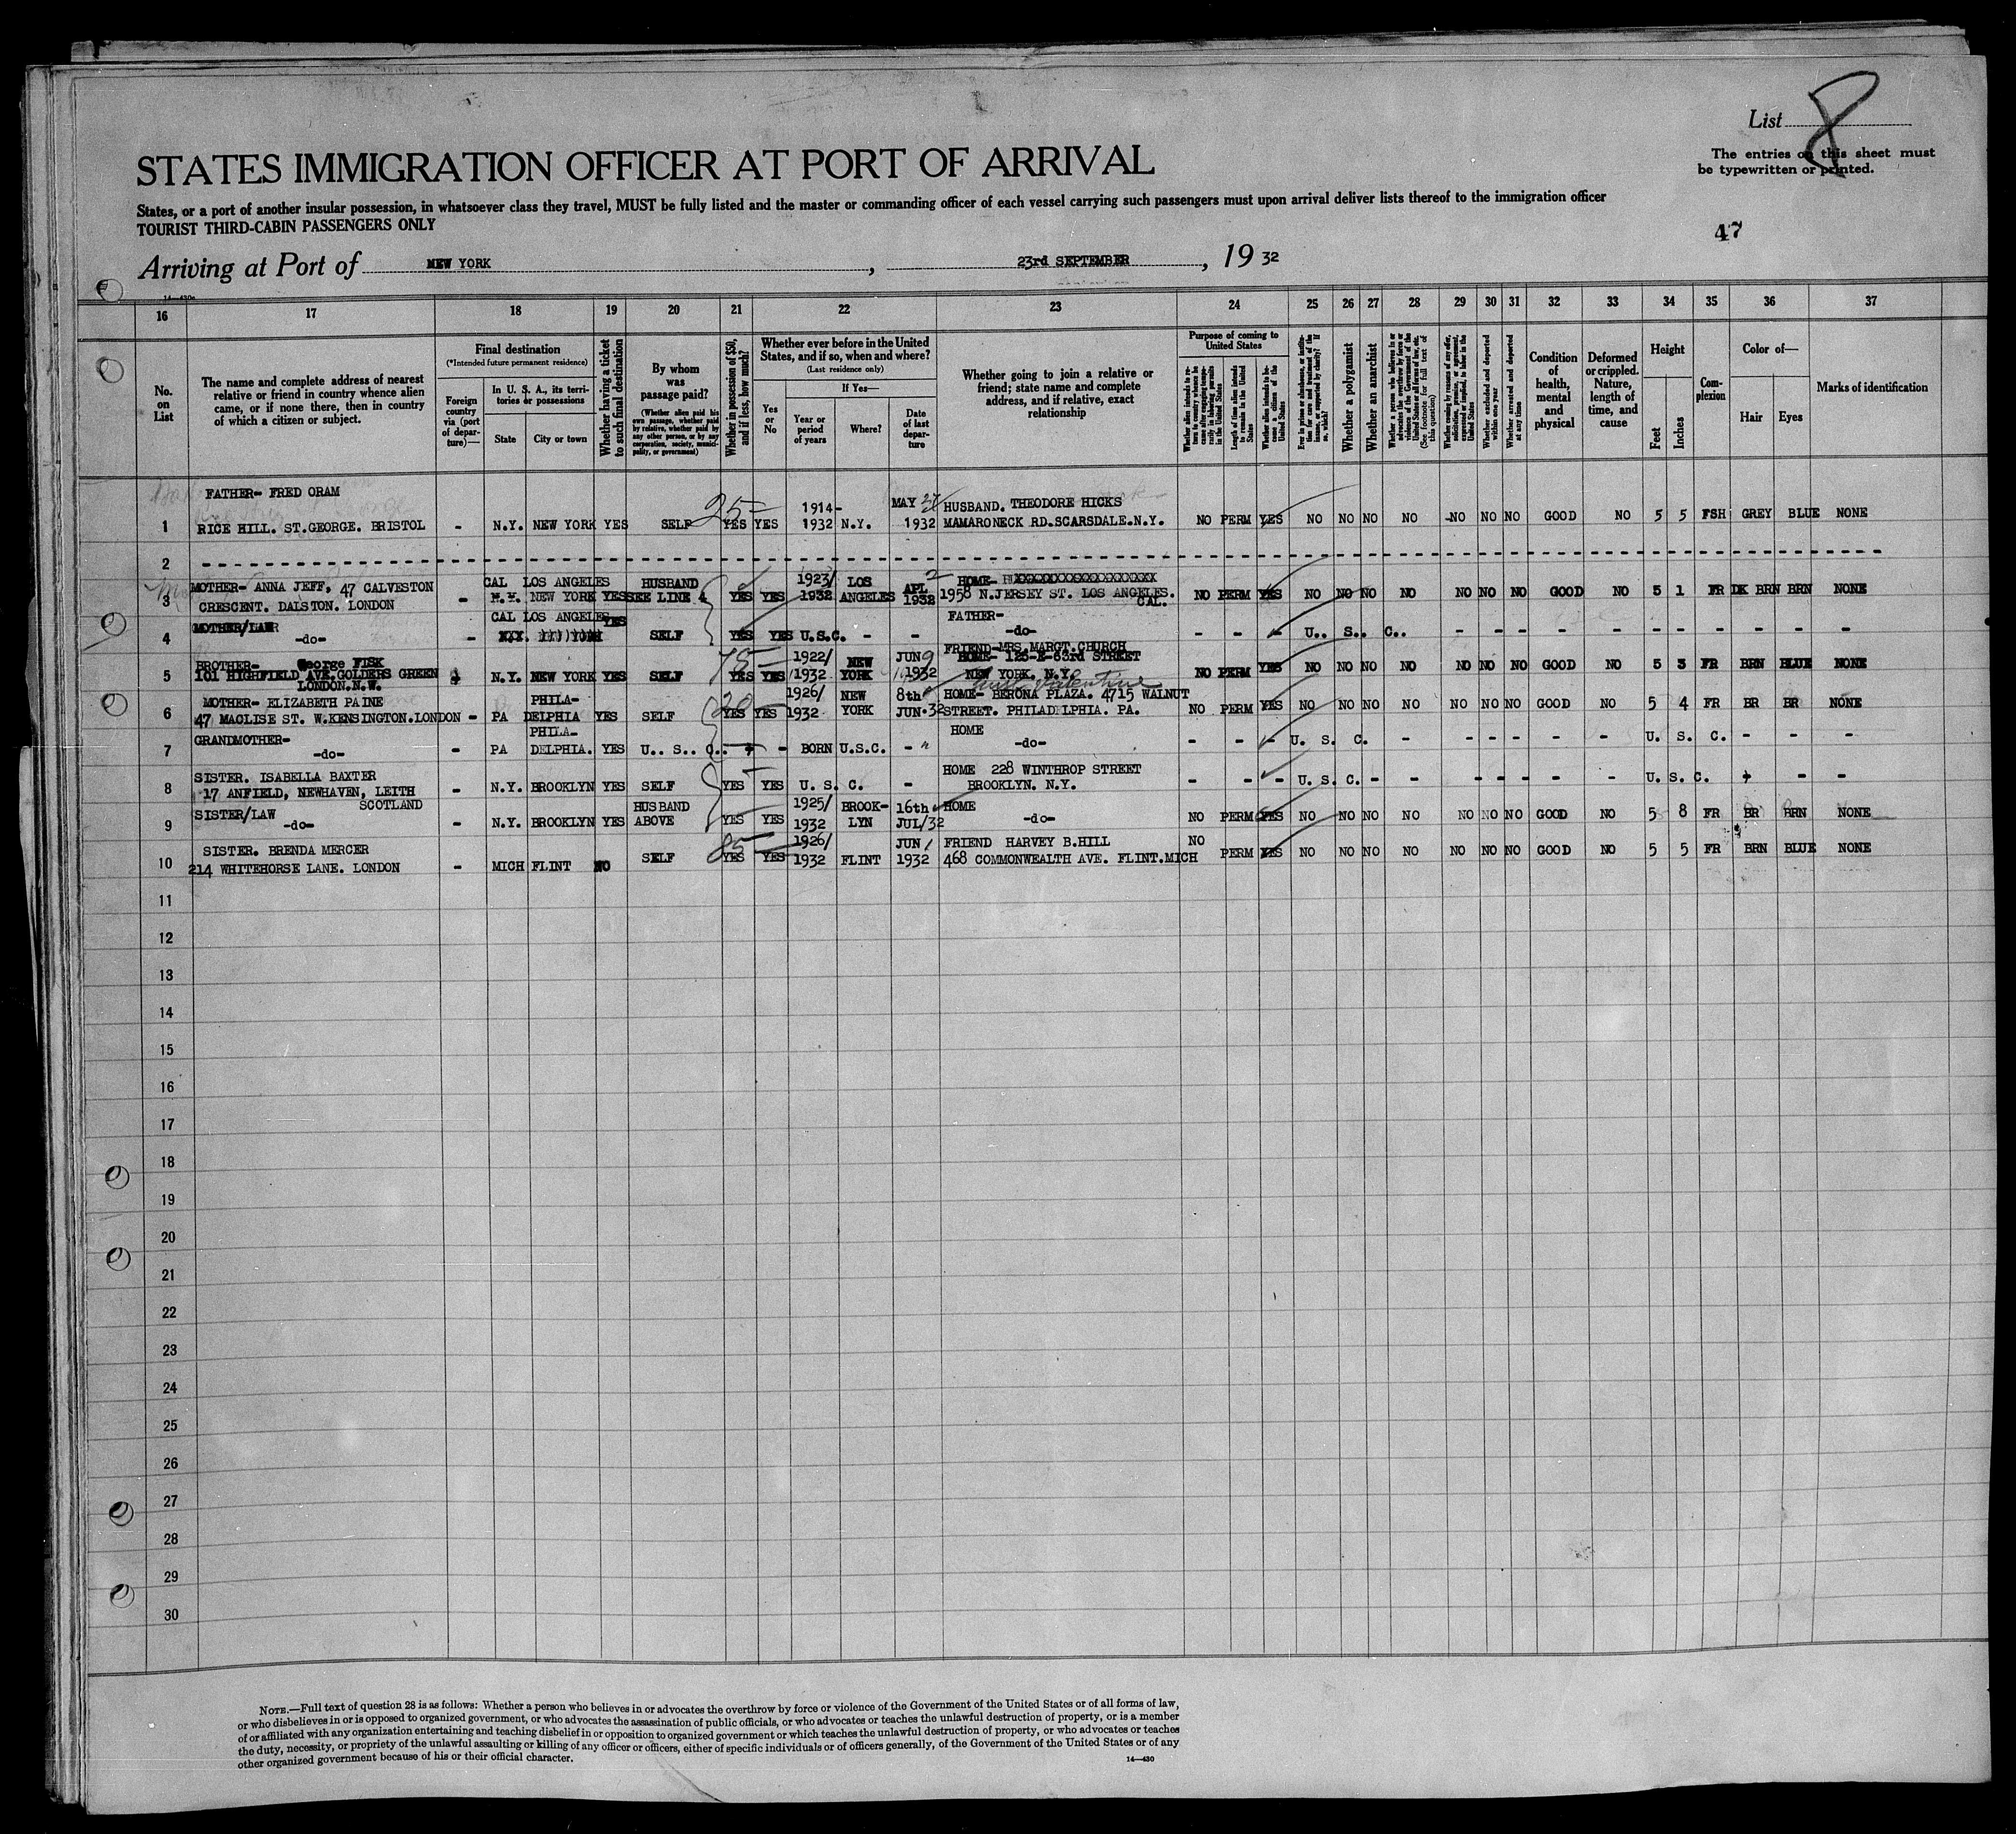 List 8
The entries on this sheet must
be typewritten or printed.
STATES IMMIGRATION OFFICER AT PORT OF ARRIVAL
States, or a port of another insular possession, in whatsoever class they travel, MUST be fully listed and the master or commanding officer of each vessel carrying such passengers must upon arrival deliver lists thereof to the immigration officer
TOURIST THIRD-CABIN PASSENGERS ONLY
47
Arriving at Port of NEW YORK, 23rd SEPTEMBER, 19 32
16 17 18 19 20 21 22 23 24 25 26 27 28 29 30 31 32 33 34 35 36 37
No. on List
The name and complete address of nearest relative or friend in country whence alien came, or if none there, then in country of which a citizen or subject.
Final destination
(*Intended future permanent residence)
Foreign country via (port of departure)—
In U. S. A., its territories or possessions
State
City or town
Whether having a ticket to such final destination
By whom was passage paid?
(Whether alien paid his own passage, whether paid by relative, whether paid by any other person, or by any corporation, society, municipality, or government)
Whether in possession of $50, and if less, how much?
Whether ever before in the United States, and if so, when and where?
(Last residence only)
Yes or No
If Yes—
Year or period of years
Where?
Date of last departure
Whether going to join a relative or friend; state name and complete address, and if relative, exact relationship
Purpose of coming to United States
Length of time alien intends to remain in the United States
Whether alien intends to become a citizen of the United States
Whether a polygamist
Whether an anarchist
Whether excluded and deported within one year
Whether arrested and deported at any time
Condition of health, mental and physical
Deformed or crippled. Nature, length of time, and cause
Height
Feet
Inches
Complexion
Color of—
Hair
Eyes
Marks of identification
FATHER- FRED ORAM 25- 1914- MAY HUSBAND. THEODORE HICKS
1 RICE HILL. ST.GEORGE. BRISTOL - N.Y. NEW YORK YES SELF YES YES 1932 N.Y. 1932 MAMARONECK RD.SCARSDALE.N.Y. NO PERM YES NO NO NO NO -NO NO NO GOOD NO 5 5 FSH GREY BLUE NONE
2
MOTHER- ANNA JEFF, 47 CALVESTON CAL LOS ANGELES HUSBAND 1923/ LOS APL 2 HOME-
3 CRESCENT. DALSTON. LONDON - N.Y. NEW YORK YES SEE LINE 4 YES YES 1932 ANGELES 1932 1958 N.JERSEY ST. LOS ANGELES. CAL. NO PERM YES NO NO NO NO NO NO NO GOOD NO 5 1 FR DK BRN BRN NONE
MOTHER/LAW CAL LOS ANGELES YES FATHER-
4 -do- - SELF YES YES U.S.C. - - -do- - - - U.. S.. C.. - - - - - - - - - - -
BROTHER- George FISK 75- 1922/ NEW JUN 9 FRIEND-MRS.MARGT.CHURCH
HOME- 125-E-63rd STREET
5 101 HIGHFIELD AVE.GOLDERS GREEN N.Y. NEW YORK YES SELF YES YES 1932 YORK 1932 NEW YORK. N.Y. NO PERM YES NO NO NO NO NO NO NO GOOD NO 5 3 FR BRN BLUE NONE
LONDON.N.W.
MOTHER- ELIZABETH PAINE PHILA- 20- 1926/ NEW 8th HOME- BERONA PLAZA. 4715 WALNUT
6 47 MACLISE ST. W.KENSINGTON.LONDON - PA DELPHIA YES SELF YES YES 1932 YORK JUN.32 STREET. PHILADELPHIA. PA. NO PERM YES NO NO NO NO NO NO NO GOOD NO 5 4 FR BR BR NONE
GRANDMOTHER- PHILA- HOME
7 -do- - PA DELPHIA. YES U.. S.. C.. - - BORN U.S.C. - -do- - - - U. S. C. - - - - - - U. S. C. - - -
SISTER. ISABELLA BAXTER HOME 228 WINTHROP STREET
8 17 ANFIELD, NEWHAVEN, LEITH - N.Y. BROOKLYN YES SELF YES YES U. S. C. - BROOKLYN. N.Y. - - - U. S. C. - - - - - - - U. S. C. - - -
SCOTLAND
SISTER/LAW HUSBAND 1925/ BROOK- 16th HOME
9 -do- - N.Y. BROOKLYN YES ABOVE YES YES 1932 LYN JUL/32 -do- NO PERM YES NO NO NO NO NO NO NO GOOD NO 5 8 FR BR BRN NONE
SISTER. BRENDA MERCER 85- 1926/ JUN 1 FRIEND HARVEY B.HILL
10 214 WHITEHORSE LANE. LONDON - MICH FLINT NO SELF YES YES 1932 FLINT 1932 468 COMMONWEALTH AVE. FLINT.MICH NO PERM YES NO NO NO NO NO NO NO GOOD NO 5 5 FR BRN BLUE NONE
11
12
13
14
15
16
17
18
19
20
21
22
23
24
25
26
27
28
29
30
NOTE.—Full text of question 28 is as follows: Whether a person who believes in or advocates the overthrow by force or violence of the Government of the United States or of all forms of law,
or who disbelieves in or is opposed to organized government, or who advocates the assassination of public officials, or who advocates or teaches the unlawful destruction of property, or is a member
of or affiliated with any organization entertaining and teaching disbelief in or opposition to organized government or which teaches the unlawful destruction of property, or who advocates or teaches
the duty, necessity, or propriety of the unlawful assaulting or killing of any officer or officers, either of specific individuals or of officers generally, of the Government of the United States or of any
other organized government because of his or their official character.
14—430